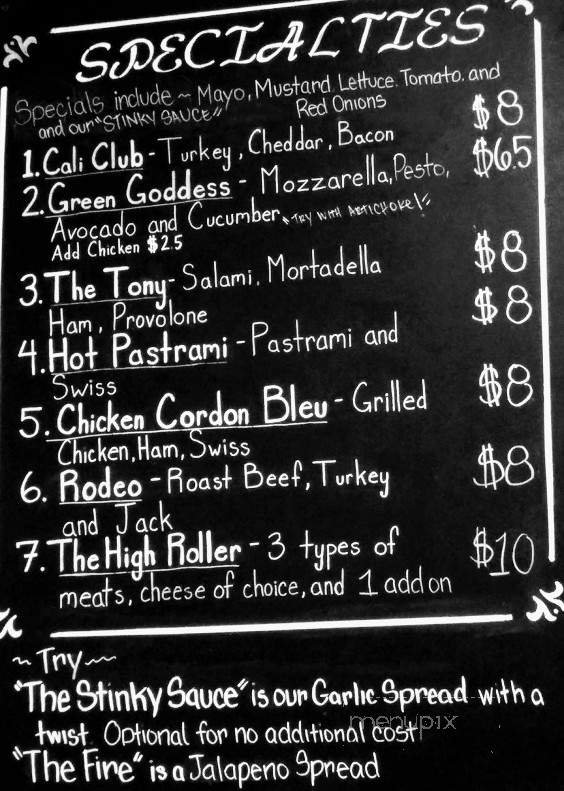 SPECIALTIES
Specials include ~ Mayo, Mustand, Lettuce, Tomato, and
and our "STINKY SAUCE" Red Onions
1. Cali Club - Turkey, Cheddar, Bacon $8
2. Green Goddess - Mozzarella, Pesto, $6.5
Avocado and Cucumber, TRY WITH ARTICHOKE!
Add Chicken $2.5
3. The Tony - Salami, Mortadella $8
Ham, Provolone
4. Hot Pastrami - Pastrami and $8
Swiss
5. Chicken Cordon Bleu - Grilled $8
Chicken, Ham, Swiss
6. Rodeo - Roast Beef, Turkey $8
and Jack
7. The High Roller - 3 types of $10
meats, cheese of choice, and 1 add on
~ Try ~
"The Stinky Sauce" is our Garlic Spread with a
twist. Optional for no additional cost
"The Fine" is a Jalapeno Spread
menupix